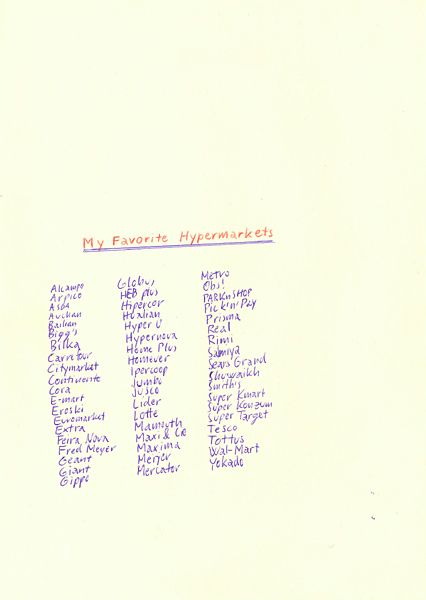 My Favorite Hypermarkets
Alcampo
Arpico
Asda
Auchan
Bailian
Bigg's
Bilka
Carrefour
Citymarket
Continente
Cora
E-mart
Eroski
Euromarket
Extra
Feira Nova
Fred Meyer
Geant
Giant
Gippo
Globus
HEB plus
Hipercor
Hualian
Hyper U
Hypernova
Home Plus
Homever
Ipercoop
Jumbo
Jusco
Lider
Lotte
Mammoth
Maxi &
Maxima
Meijer
Mercator
Metro
Obs!
PARKnSHOP
Pick n' Pay
Prisma
Real
Rimi
Samiya
Sears Grand
Shuwaikh
Smith's
Super Kmart
Super Konzum
Super Target
Tesco
Tottus
Wal-Mart
Yokado